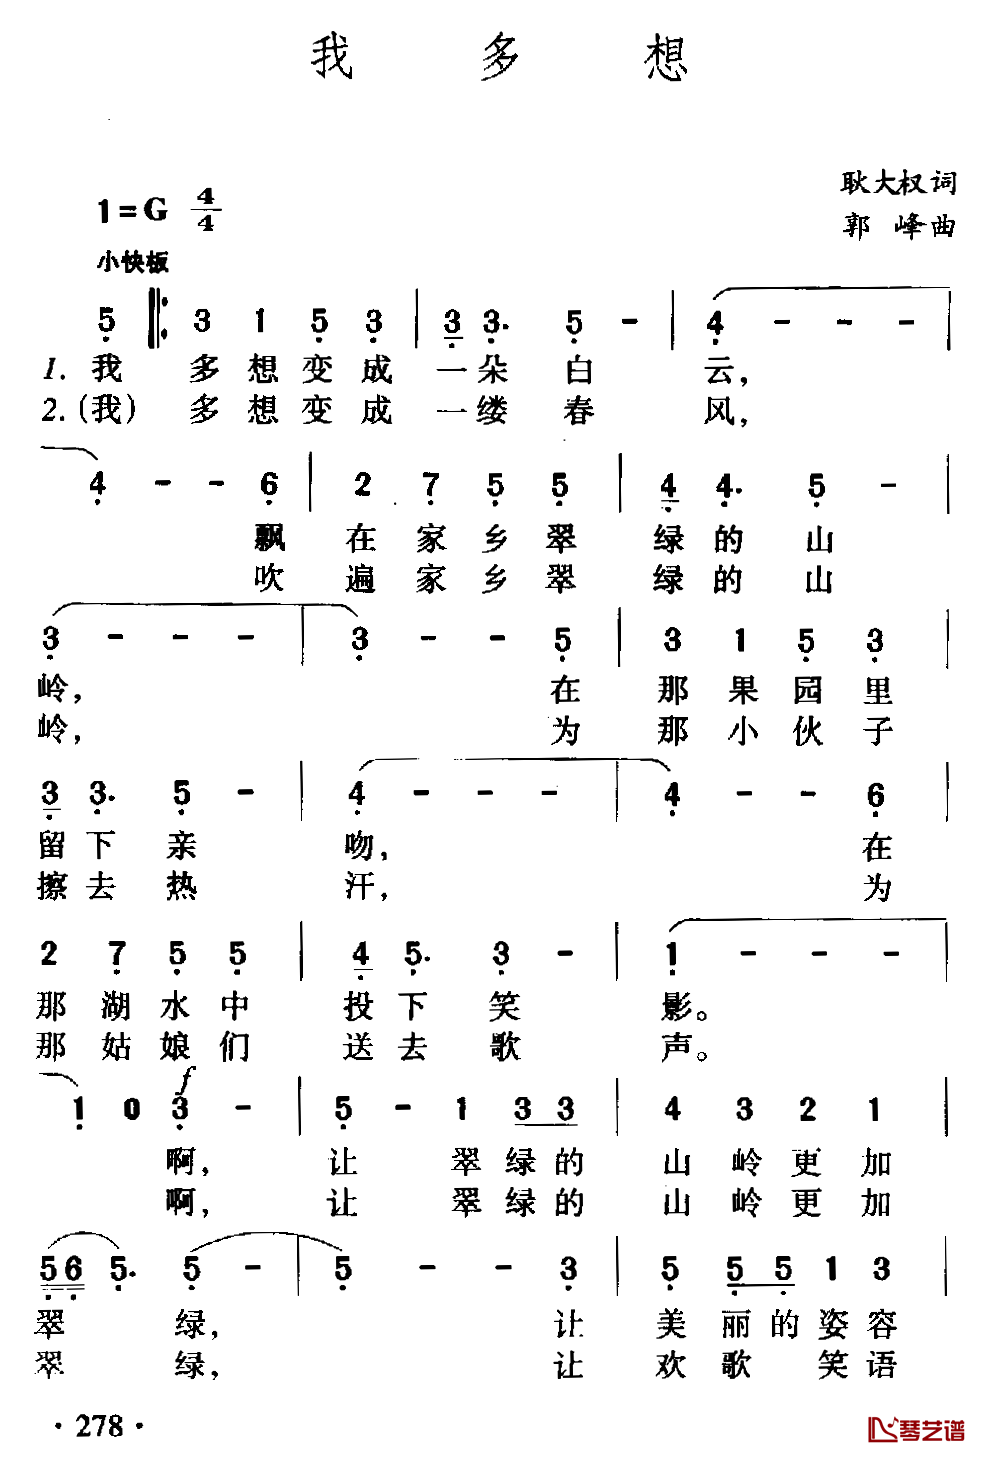 我多想
耿大权词
1=G 4/4
郭峰曲
小快板
5 3 1 5 3 | 3 3. 5 - | 4 - - - |
1. 我 多 想 变 成 一 朵 白 云，
2.（我）多 想 变 成 一 缕 春 风，
4 - - 6 | 2 7 5 5 | 4 4. 5 - |
飘 在 家 乡 翠 绿 的 山
吹 遍 家 乡 翠 绿 的 山
3 - - - | 3 - - 5 | 3 1 5 3 |
岭， 在 那 果 园 里
岭， 为 那 小 伙 子
3 3. 5 - | 4 - - - | 4 - - 6 |
留 下 亲 吻， 在
擦 去 热 汗， 为
2 7 5 5 | 4 5. 3 - | 1 - - - |
那 湖 水 中 投 下 笑 影。
那 姑 娘 们 送 去 歌 声。
f
1 0 3 - | 5 - 1 3 3 | 4 3 2 1 |
啊， 让 翠 绿 的 山 岭 更 加
啊， 让 翠 绿 的 山 岭 更 加
5 6 5. 5 - | 5 - - 3 | 5 5 5 1 3 |
翠 绿， 让 美 丽 的 姿 容
翠 绿， 让 欢 歌 笑 语
· 278 ·
琴艺谱